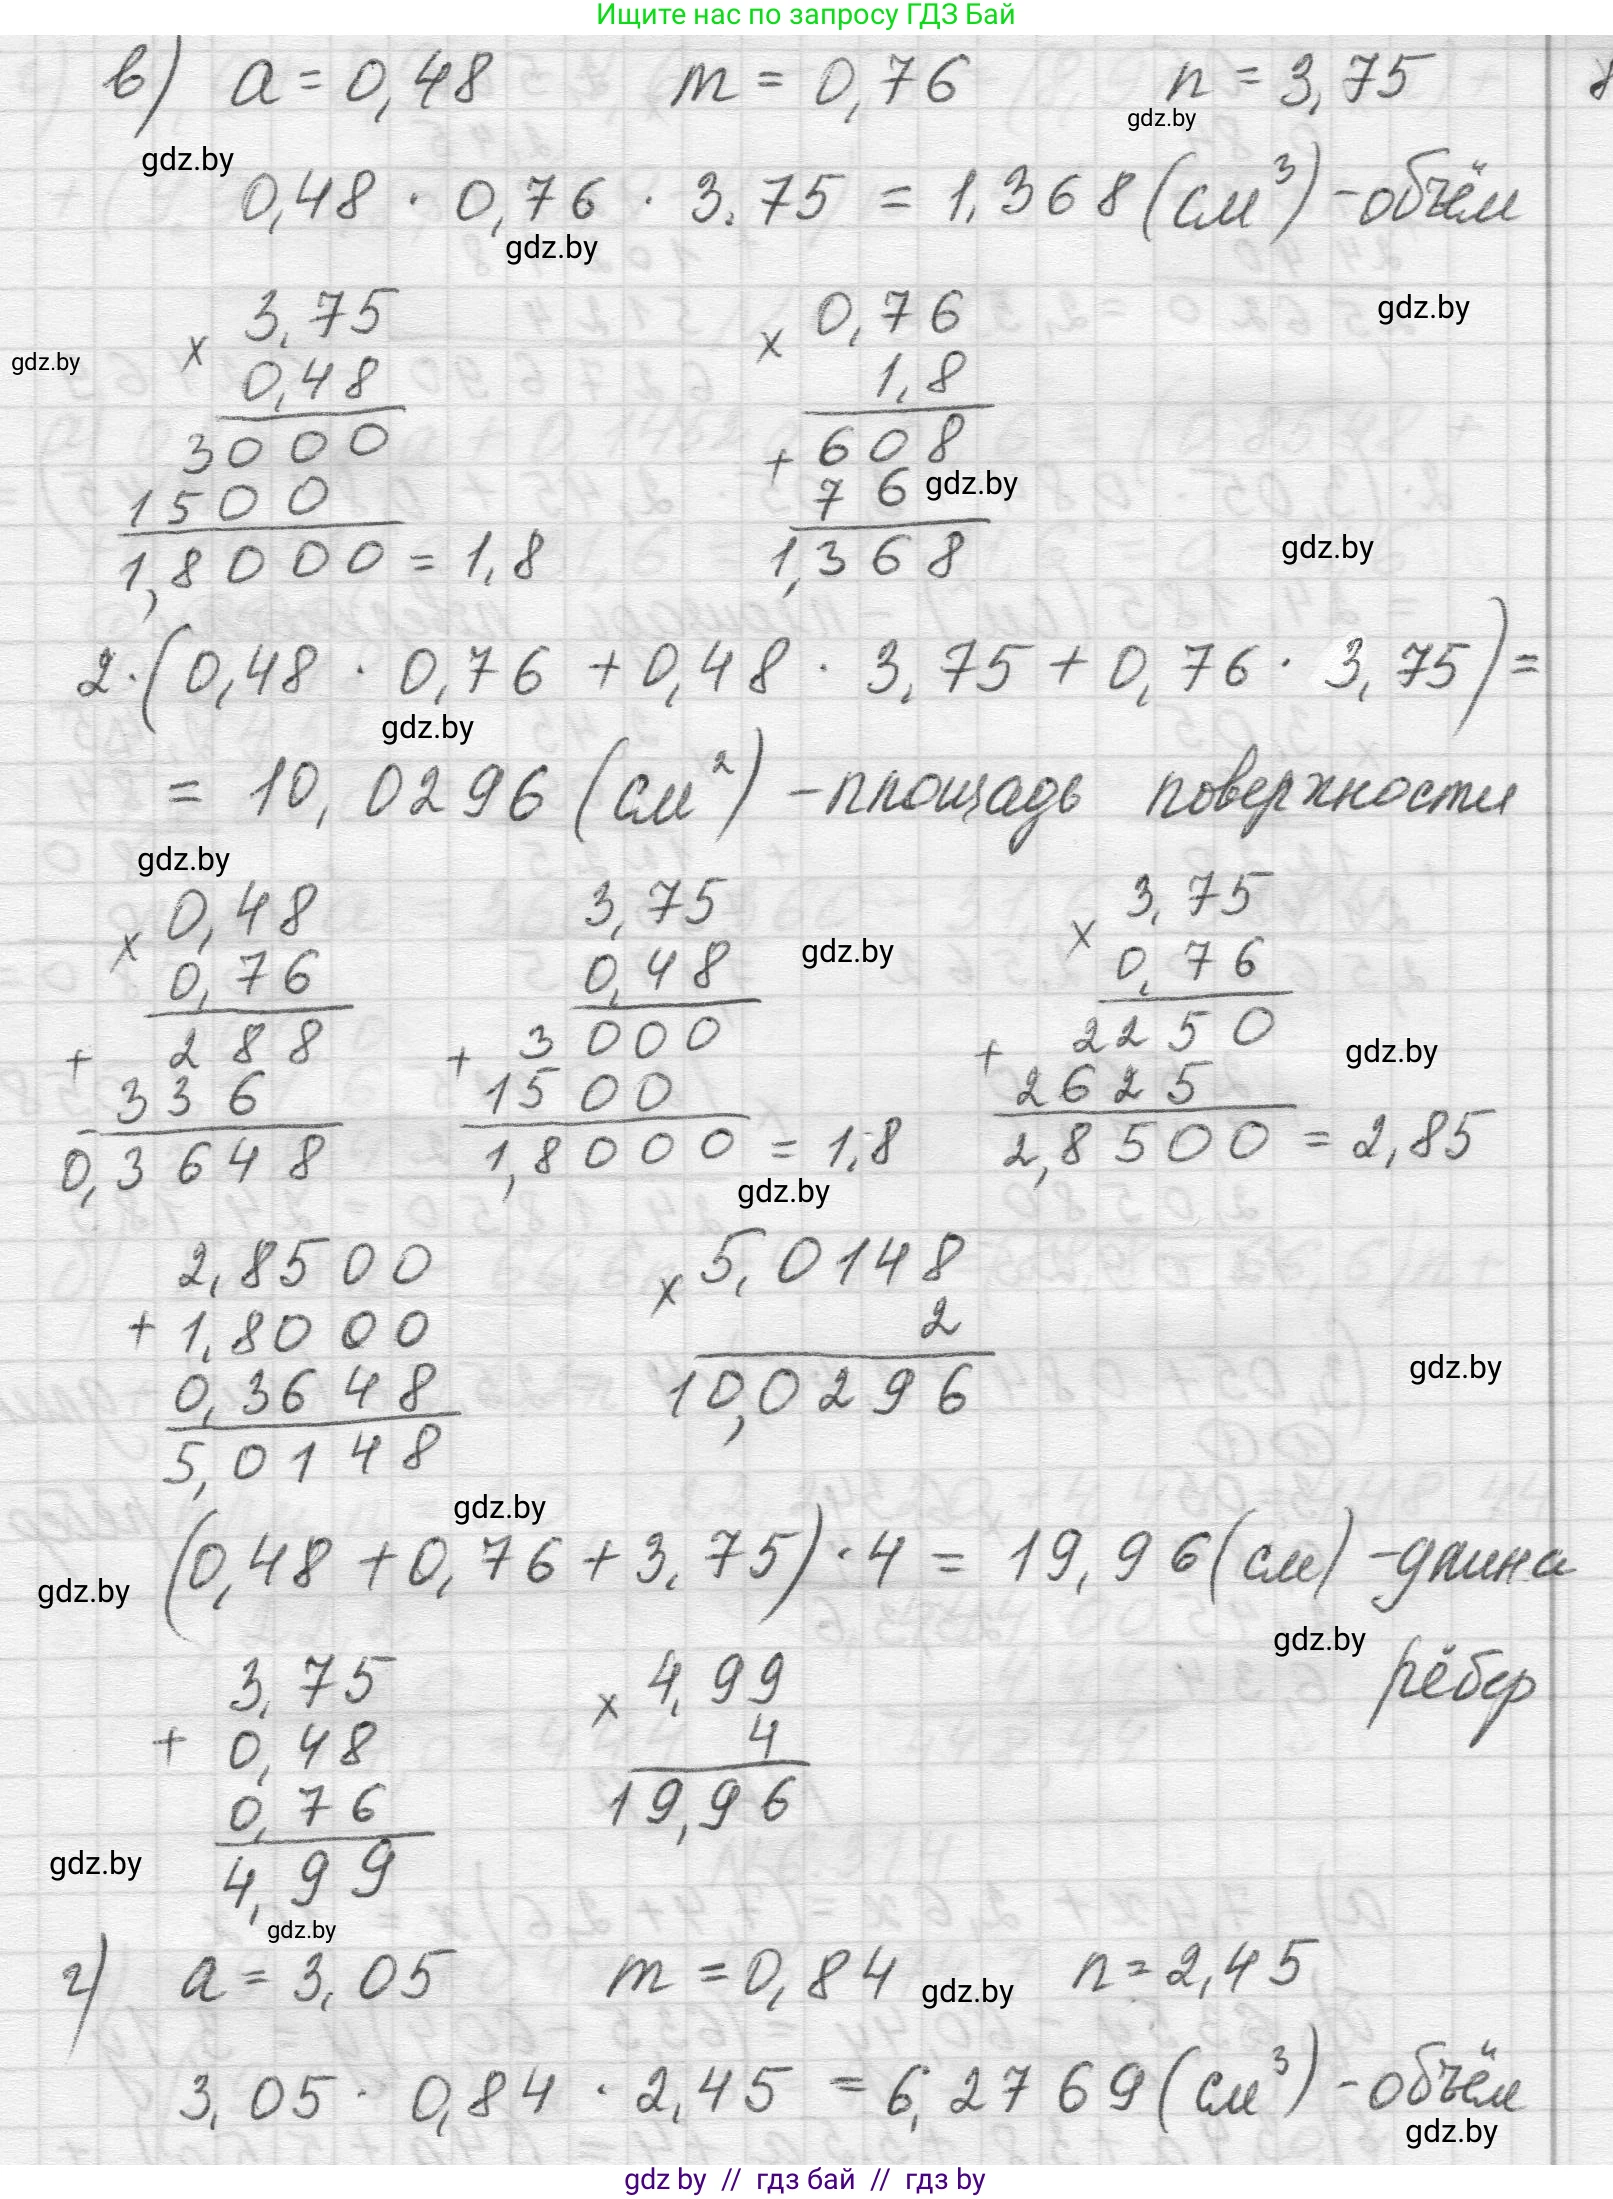 Ищите нас по запросу ГДЗ Бай
в) a = 0,48 m = 0,76 n = 3,75
gdz.by
gdz.by
0,48 · 0,76 · 3,75 = 1,368 (см³) - объём
gdz.by
gdz.by
× 3,75 × 0,76
gdz.by
0,48 1,8
3000 + 608
1500 76 gdz.by
1,8000 = 1,8 1,368
gdz.by
2·(0,48 · 0,76 + 0,48 · 3,75 + 0,76 · 3,75) =
gdz.by
= 10,0296 (см²) - площадь поверхности
gdz.by
× 0,48 3,75 × 3,75
gdz.by
0,76 0,48 0,76
+ 288 + 3000 + 2250
gdz.by
336 1500 2625
0,3648 1,8000 = 1,8 2,8500 = 2,85
gdz.by
2,8500 × 5,0148
+ 1,8000 2
0,3648 10,0296
gdz.by
5,0148
gdz.by
(0,48 + 0,76 + 3,75) · 4 = 19,96 (см) - длина
gdz.by
gdz.by
рёбер
3,75 × 4,99
+ 0,48 4
0,76 19,96
gdz.by
4,99
gdz.by
г) a = 3,05 m = 0,84 n = 2,45
gdz.by
3,05 · 0,84 · 2,45 = 6,2769 (см³) - объём
gdz.by
gdz by // гдз бай // гдз by